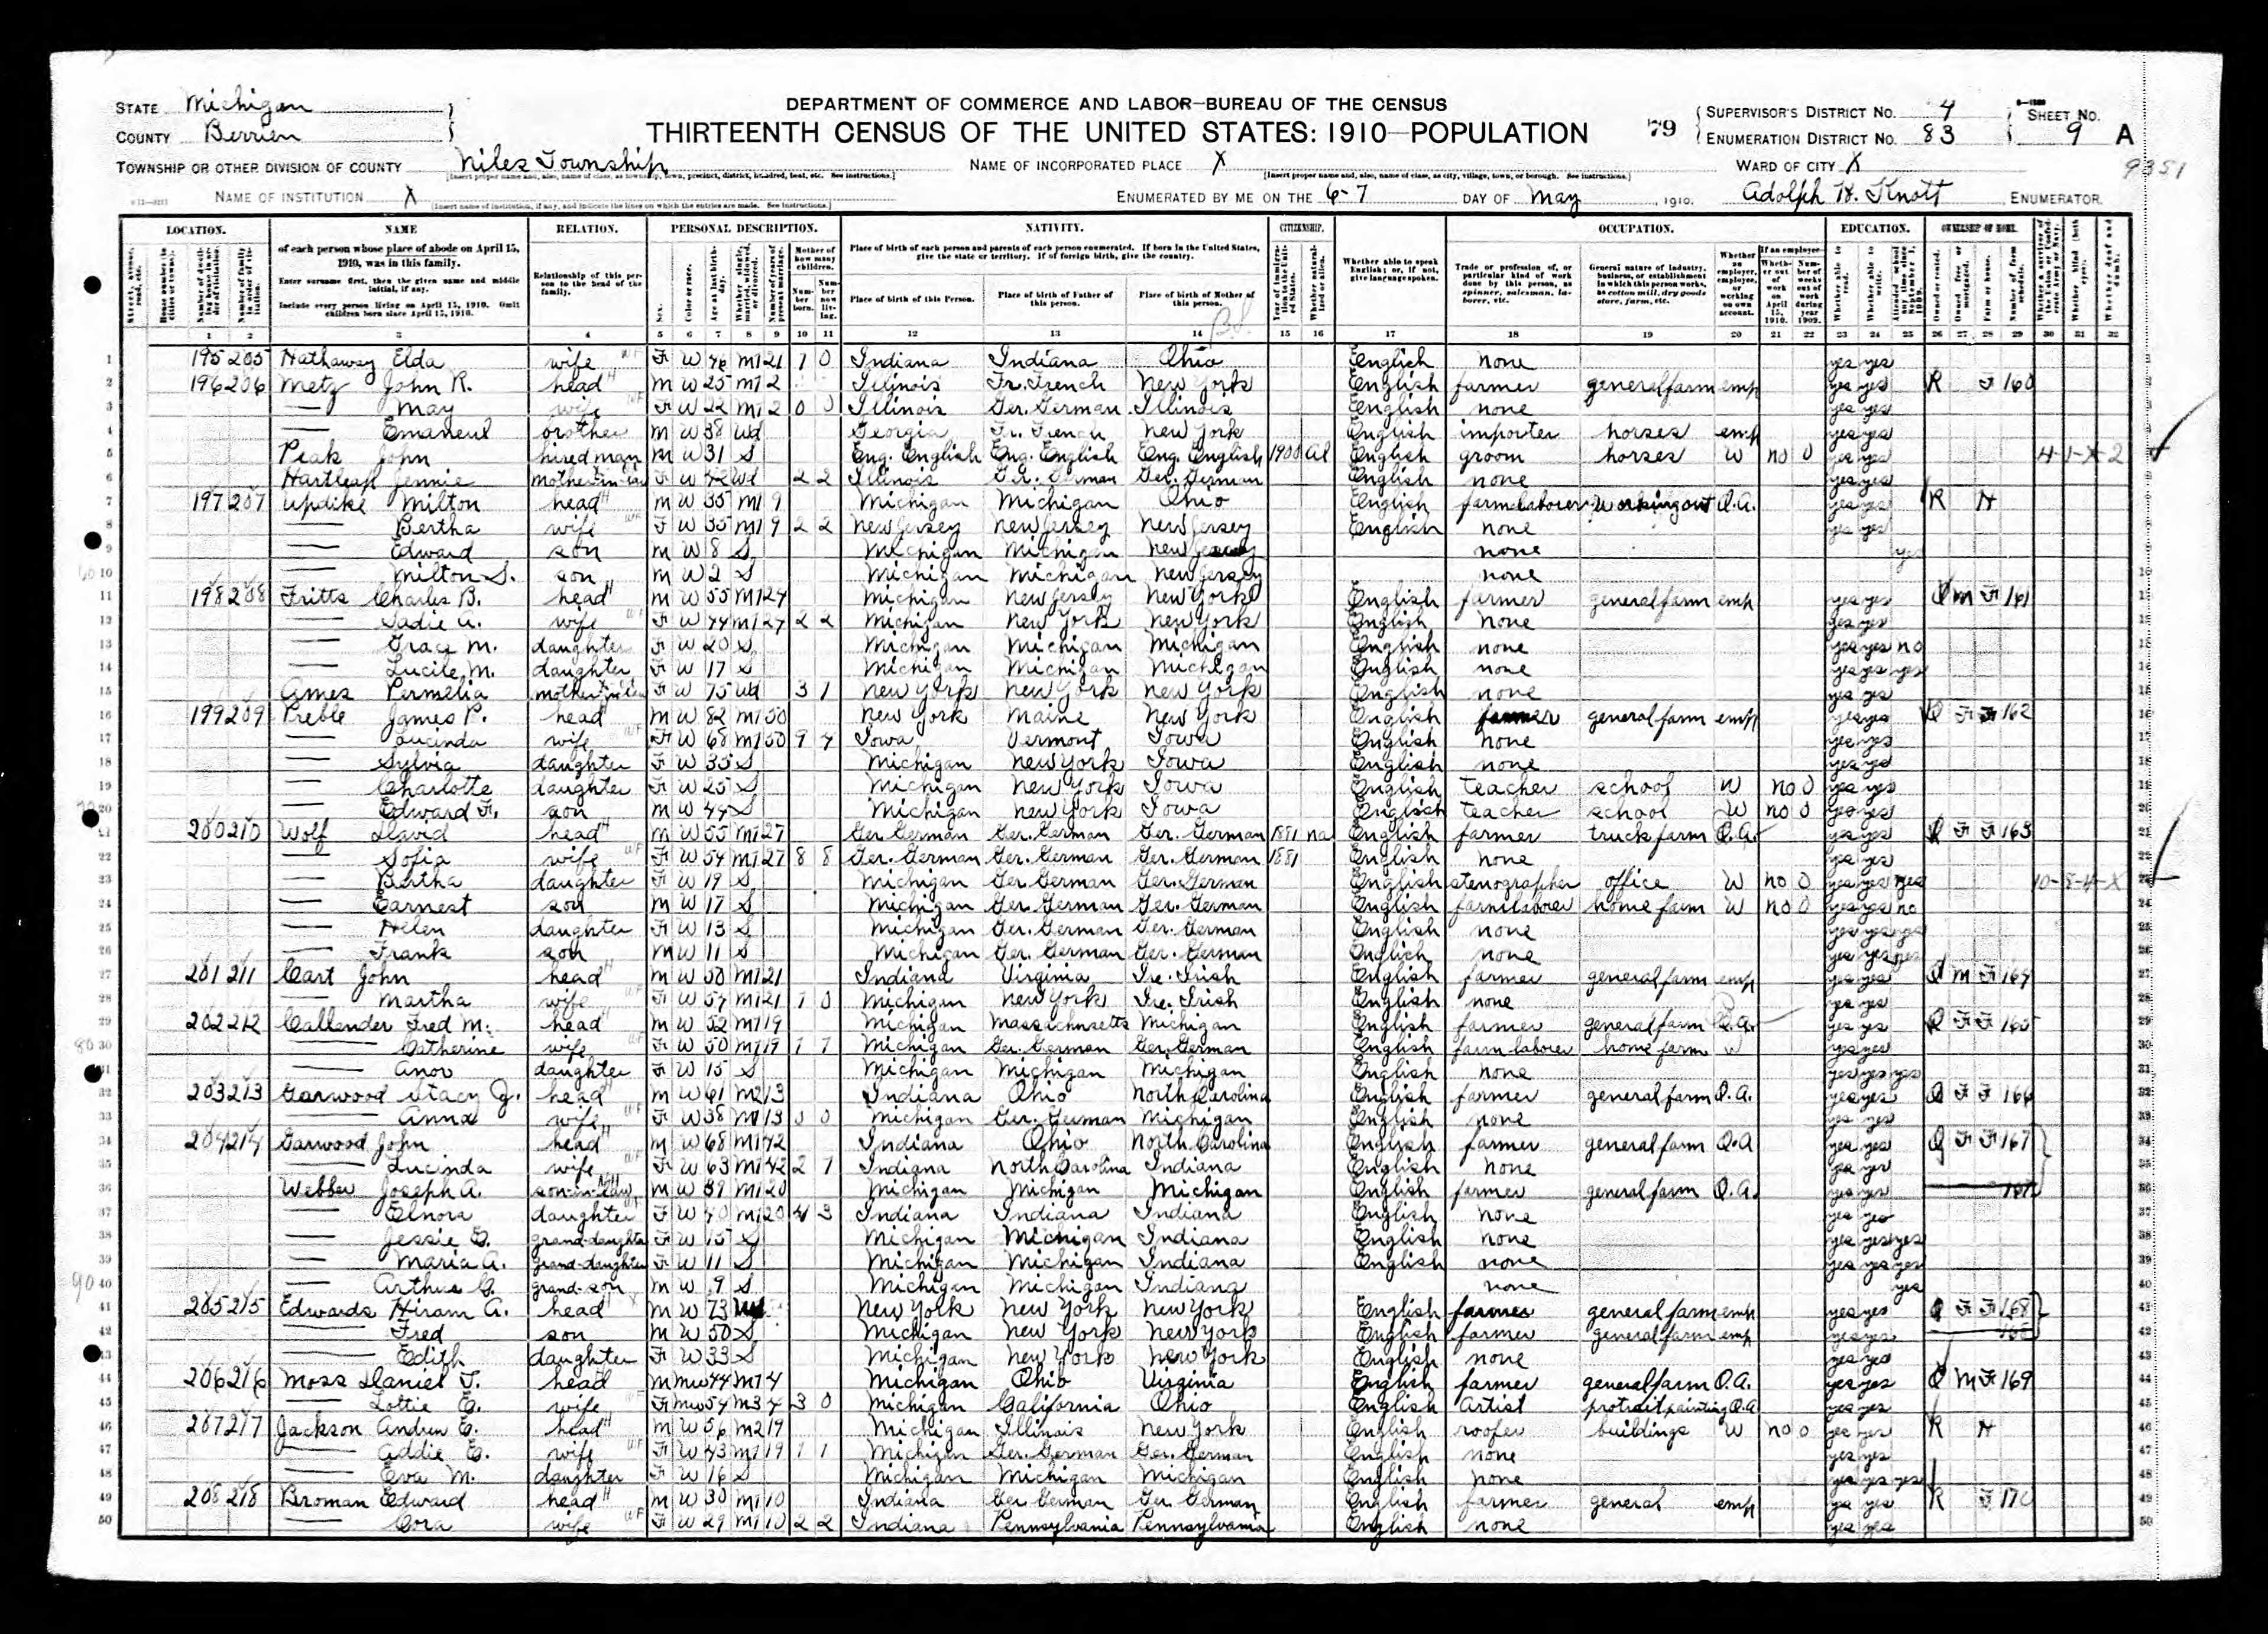 DEPARTMENT OF COMMERCE AND LABOR—BUREAU OF THE CENSUS
THIRTEENTH CENSUS OF THE UNITED STATES: 1910—POPULATION
STATE Michigan
COUNTY Berrien
TOWNSHIP OR OTHER DIVISION OF COUNTY Niles Township
NAME OF INSTITUTION X
NAME OF INCORPORATED PLACE X
ENUMERATED BY ME ON THE 6-7 DAY OF May, 1910.
79
SUPERVISOR'S DISTRICT NO. 4
ENUMERATION DISTRICT NO. 83
SHEET NO. 9 A
WARD OF CITY X
9351
Adolph H. Knott ENUMERATOR.
LOCATION. NAME RELATION. PERSONAL DESCRIPTION. NATIVITY. CITIZENSHIP. OCCUPATION. EDUCATION. OWNERSHIP OF HOME.
of each person whose place of abode on April 15, 1910, was in this family.
Enter surname first, then the given name and middle initial, if any.
Include every person living on April 15, 1910. Omit children born since April 15, 1910.
Relationship of this person to the head of the family.
Place of birth of each person and parents of each person enumerated. If born in the United States, give the state or territory. If of foreign birth, give the country.
Place of birth of this Person. Place of birth of Father of this person. Place of birth of Mother of this person.
Whether able to speak English; or, if not, give language spoken.
1 2 3 4 5 6 7 8 9 10 11 12 13 14 15 16 17 18 19 20 21 22 23 24 25 26 27 28 29 30 31 32
1 195 205 Hathaway Elda wife F W 46 M1 21 1 0 Indiana Indiana Ohio English none yes yes
2 196 206 Metz John R. head M W 25 M1 2 Illinois Fr. French New York English farmer general farm emp yes yes R F 160
3 — May wife F W 22 M1 2 0 0 Illinois Ger. German Illinois English none yes yes
4 — Emaneul brother M W 38 Wd Georgia Fr. French New York English importer horses emp yes yes
5 Peak John hired man M W 31 S Eng. English Eng. English Eng. English 1900 Al English groom horses W no 0 yes yes
6 Jennie mother-in-law F W Wd 2 2 Illinois Ger. German Ger. German English none yes yes
7 197 207 Updike Milton head M W 35 M1 9 Michigan Michigan Ohio English farm laborer working out O.A. yes yes R H
8 — Bertha wife F W 35 M1 9 2 2 New Jersey New Jersey New Jersey English none yes yes
9 — Edward son M W 8 S Michigan Michigan New Jersey none yes
10 — Milton S. son M W 2 S Michigan Michigan New Jersey none
11 198 208 Fritts Charles B. head M W 55 M1 24 Michigan New Jersey New York English farmer general farm emp yes yes O M F 161
12 — Sadie A. wife F W 44 M1 24 2 2 Michigan New York New York English none yes yes
13 — Grace M. daughter F W 20 S Michigan Michigan Michigan English none yes yes no
14 — Lucile M. daughter F W 17 S Michigan Michigan Michigan English none yes yes yes
15 Ames Permelia mother-in-law F W 75 Wd 3 1 New York New York New York English none yes yes
16 199 209 Preble James P. head M W 82 M1 50 New York Maine New York English farmer general farm emp yes yes O F F 162
17 — Lucinda wife F W 68 M1 50 9 4 Iowa Vermont Iowa English none yes yes
18 — Sylvia daughter F W 35 S Michigan New York Iowa English none yes yes
19 — Charlotte daughter F W 25 S Michigan New York Iowa English teacher school W no 0 yes yes
20 — Edward F. son M W 44 S Michigan New York Iowa English teacher school W no 0 yes yes
21 200 210 Wolf David head M W 55 M1 27 Ger. German Ger. German Ger. German 1881 na English farmer truck farm O.A. yes yes O F F 163
22 — Sofia wife F W 54 M1 27 8 8 Ger. German Ger. German Ger. German 1881 English none yes yes
23 — Bertha daughter F W 19 S Michigan Ger. German Ger. German English stenographer office W no 0 yes yes yes
24 — Earnest son M W 17 S Michigan Ger. German Ger. German English farm laborer home farm W no 0 yes yes no
25 — Helen daughter F W 13 S Michigan Ger. German Ger. German English none yes yes yes
26 — Frank son M W 11 S Michigan Ger. German Ger. German English none yes yes yes
27 201 211 Cart John head M W 50 M1 21 Indiana Virginia Ire. Irish English farmer general farm emp yes yes O M F 164
28 — Martha wife F W M1 21 1 0 Michigan New York Ire. Irish English none yes yes
29 202 212 Callender Fred M. head M W 52 M1 19 Michigan Massachusetts Michigan English farmer general farm O.A. yes yes O F F 165
30 — Catherine wife F W 50 M1 19 1 1 Michigan Ger. German Ger. German English farm laborer home farm W yes yes
31 — Anor daughter F W 15 S Michigan Michigan Michigan English none yes yes yes
32 203 213 Garwood Stacy J. head M W 61 M2 13 Indiana Ohio North Carolina English farmer general farm O.A. yes yes O F F 166
33 — Anna wife F W 38 M1 13 0 0 Michigan Ger. German Michigan English none yes yes
34 204 214 Garwood John head M W 68 M1 42 Indiana Ohio North Carolina English farmer general farm O.A yes yes O F F 167
35 — Lucinda wife F W 63 M1 42 2 1 Indiana North Carolina Indiana English none yes yes
36 Webber Joseph A. son-in-law M W 39 M1 20 Michigan Michigan Michigan English farmer general farm O.A. yes yes
37 — Elnora daughter F W 40 M1 20 4 3 Indiana Indiana Indiana English none yes yes
38 — Jessie E. grand-daughter F W 15 S Michigan Michigan Indiana English none yes yes yes
39 — Maria A. grand-daughter F W 11 S Michigan Michigan Indiana English none yes yes yes
40 — Arthur C. grand-son M W 9 S Michigan Michigan Indiana none yes
41 205 215 Edwards Hiram A. head M W 73 Wd New York New York New York English farmer general farm emp yes yes O F F 168
42 — Fred son M W 50 S Michigan New York New York English farmer general farm emp yes yes
43 — Edith daughter F W 33 S Michigan New York New York English none yes yes
44 206 216 Moss Daniel T. head M Mu 44 M1 4 Michigan Ohio Virginia English farmer general farm O.A. yes yes O M F 169
45 — Lottie E. wife F Mu 54 M3 4 3 0 Michigan California Ohio English Artist protrait painting O.A yes yes
46 207 217 Jackson Andrew E. head M W 56 M2 19 Michigan Illinois New York English roofer buildings W no 0 yes yes R H
47 — Addie E. wife F W 43 M1 19 1 1 Michigan Ger. German Ger. German English none yes yes
48 — Eva M. daughter F W 16 S Michigan Michigan Michigan English none yes yes yes
49 208 218 Broman Edward head M W 30 M1 10 Indiana Ger. German Ger. German English farmer general emp yes yes R F 170
50 — Cora wife F W 29 M1 10 2 2 Indiana Pennsylvania Pennsylvania English none yes yes